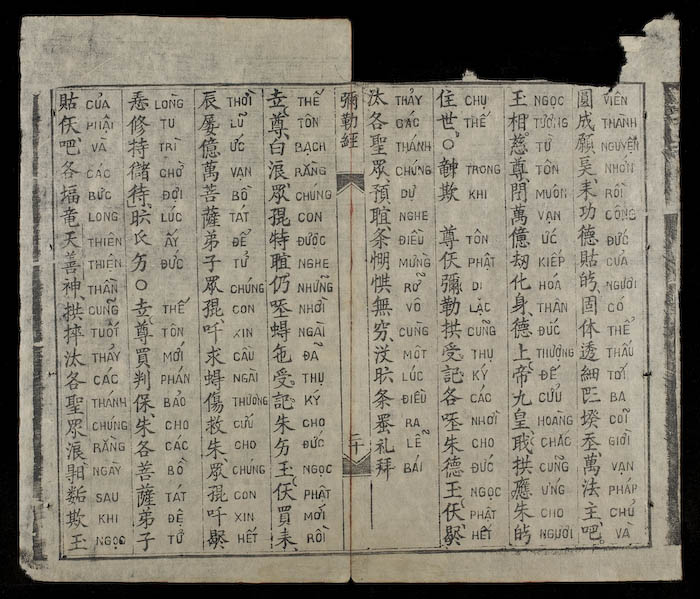 圓成願吳耒功德貼𠊛固体透細𠀧揆萬法主吧
VIÊN THÀNH NGUYỆN NHÓN RỒI CÔNG ĐỨC CỦA NGƯỜI CÓ THỂ THẤU TỚI BA CÕI GIỚI VẠN PHÁP CHỦ VÀ
王相慈尊萬億劫化身德上帝九皇拱應朱𠊛
NGỌC TƯỚNG TỪ TÔN MUÔN VẠN ỨC KIẾP HÓA THÂN ĐỨC THƯỢNG ĐẾ CỬU HOÀNG CHẮC CŨNG ỨNG CHO NGƯỜI
住世○𥪝欺 尊佛彌勒拱受記各𠳒朱德王佛歇
CHỤ THẾ TRONG KHI TÔN PHẬT DI LẶC CŨNG THỤ KÝ CÁC NHỜI CHO ĐỨC NGỌC PHẬT HẾT
汰各聖眾預𦖑条𢜠無窮没𣅶条礼拜
THẢY CÁC THÁNH CHÚNG DỰ NGHE ĐIỀU MỪNG RỞ VÔ CUNG MỘT LÚC ĐIỀU RA LỄ BÁI
彌勒經
二十
尊白浪眾𡥵特𦖑仍𠳒受記朱王佛買耒
THẾ TÔN BẠCH RẰNG CHÚNG CON ĐƯỢC NGHE NHỮNG NHỜI NGÀI ĐÃ THỤ KÝ CHO ĐỨC NGỌC PHẬT MỚI RỒI
辰屢億萬菩薩弟子眾𡥵吀求傷救朱眾𡥵吀歇
THỜI LŨ ỨC VẠN BỒ TÁT ĐỂ TỬ CHÚNG CON XIN CẦU NGÀI THƯƠNG CỨU CHO CHÚNG CON XIN HẾT
修持待𣅶○尊買判保朱各菩薩弟子
LÒNG TU TRÌ CHỜ ĐỢI LÚC ẤY ĐỨC THẾ TÔN MỚI PHÁN BẢO CHO CÁC BỒ TÁT ĐỆ TỬ
貼佛吧各竜天善神拱汰各聖眾浪欺玉
CỦA PHẬT VÀ CÁC BỨC LONG THIÊN THIÊN THẦN CUNG TUỐT THẢY CÁC THÁNH CHÚNG RẰNG NGẦY SAU KHI NGỌC